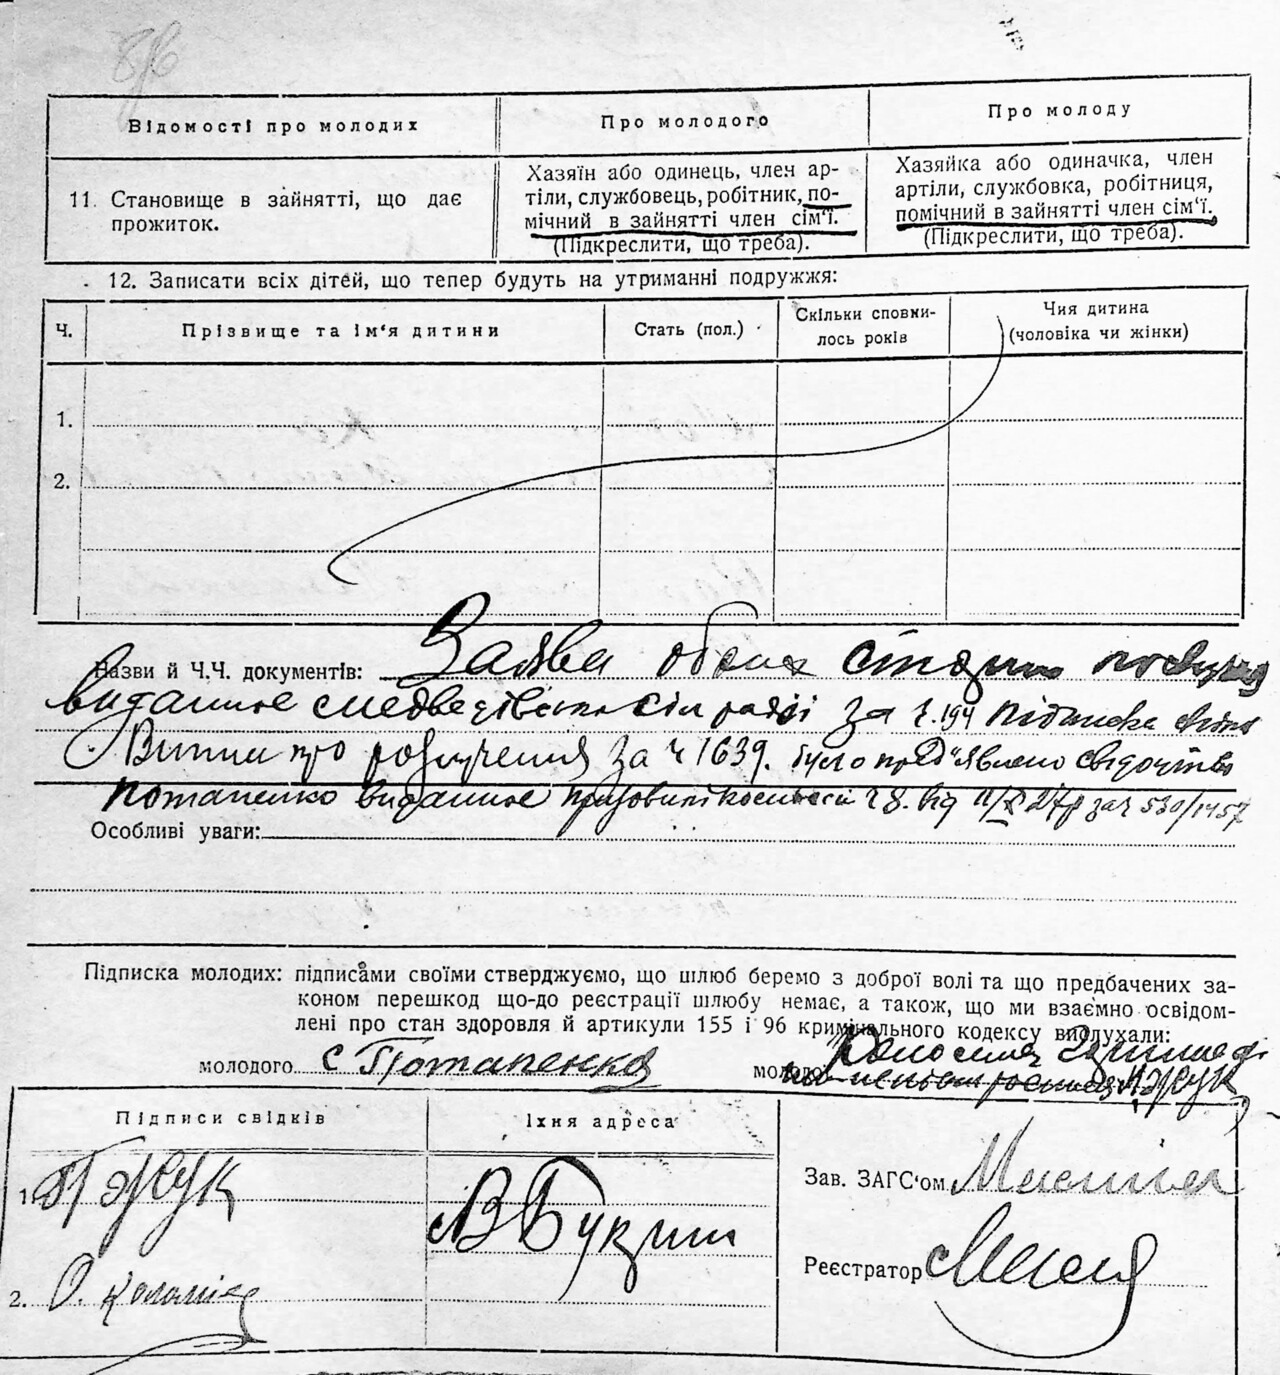 Відомості про молодих
Про молодого
Про молоду
11. Становище в зайнятті, що дає
прожиток.
Хазяїн або одинець, член ар-
тіли, службовець, робітник, по-
мічний в зайнятті член сім'ї.
(Підкреслити, що треба).
Хазяйка або одиначка, член
артіли, службовка, робітниця,
помічний в зайнятті член сім'ї.
(Підкреслити, що треба).
12. Записати всіх дітей, що тепер будуть на утриманні подружжя:
Ч.
Прізвище та ім'я дитини
Стать (пол.)
Скільки сповни-
лось років
Чия дитина
(чоловіка чи жінки)
1.
2.
Назви й Ч.Ч. документів: Заява обох сторон
видание за ч. 194
про за ч 1639. було пред'явлено
Потапенко видание від за ч 530/1457
Особливі уваги:
Підписка молодих: підписами своїми стверджуємо, що шлюб беремо з доброї волі та що предбачених за-
коном перешкод що-до реєстрації шлюбу немає, а також, що ми взаємно освідом-
лені про стан здоров'я й артикули 155 і 96 кримінального кодексу вислухали:
молодого С Потапенко
молодої
Жук
Підписи свідків
Їхня адреса
1. П Жук
В Букзин
2. О. Коломієц
Зав. ЗАГС'ом
Реєстратор